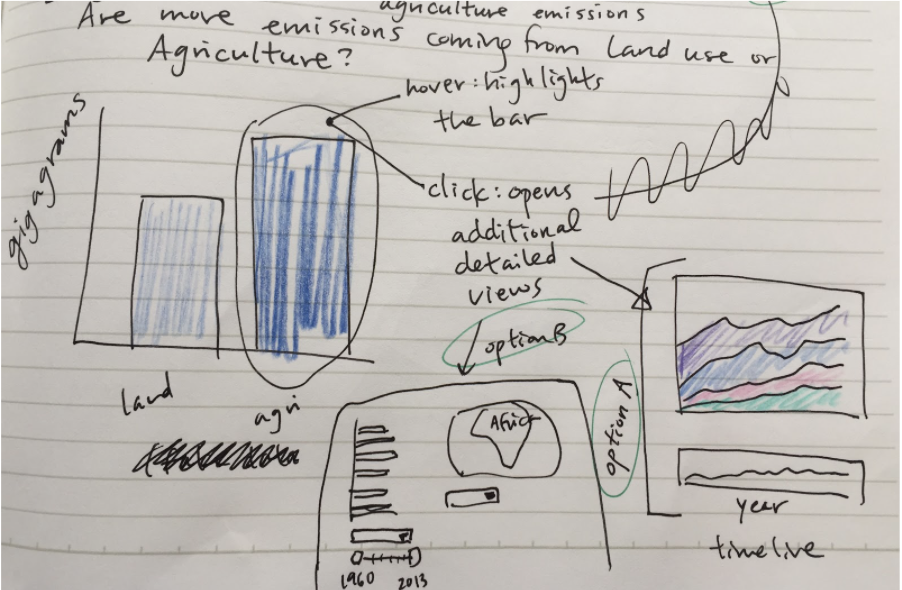 agriculture emissions
Are more emissions coming from Land use or
Agriculture?
hover: highlights
the bar
gigagrams
click: opens
additional
detailed
views
option B
option A
land
agri
Africa
1960 2013
year
timeline